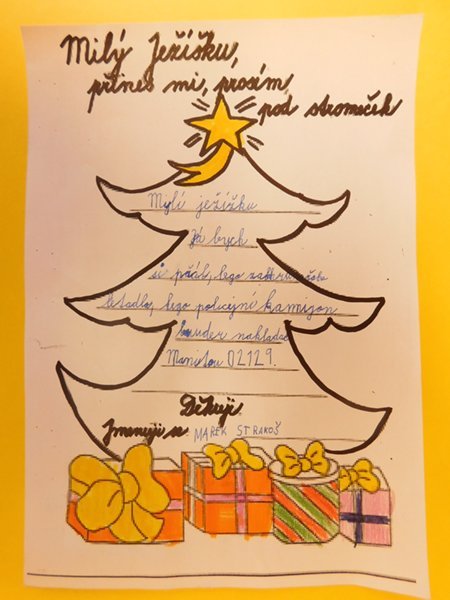 Milý Ježíšku,
přines mi, prosím,
pod stromeček
Mylí ježížku
Já bych
si přál, lego
letadlo, lego policejní kamijon
bruder nakladač
Manitou 02129.
Děkuji
Jmenuji se MAREK STRAKOŠ